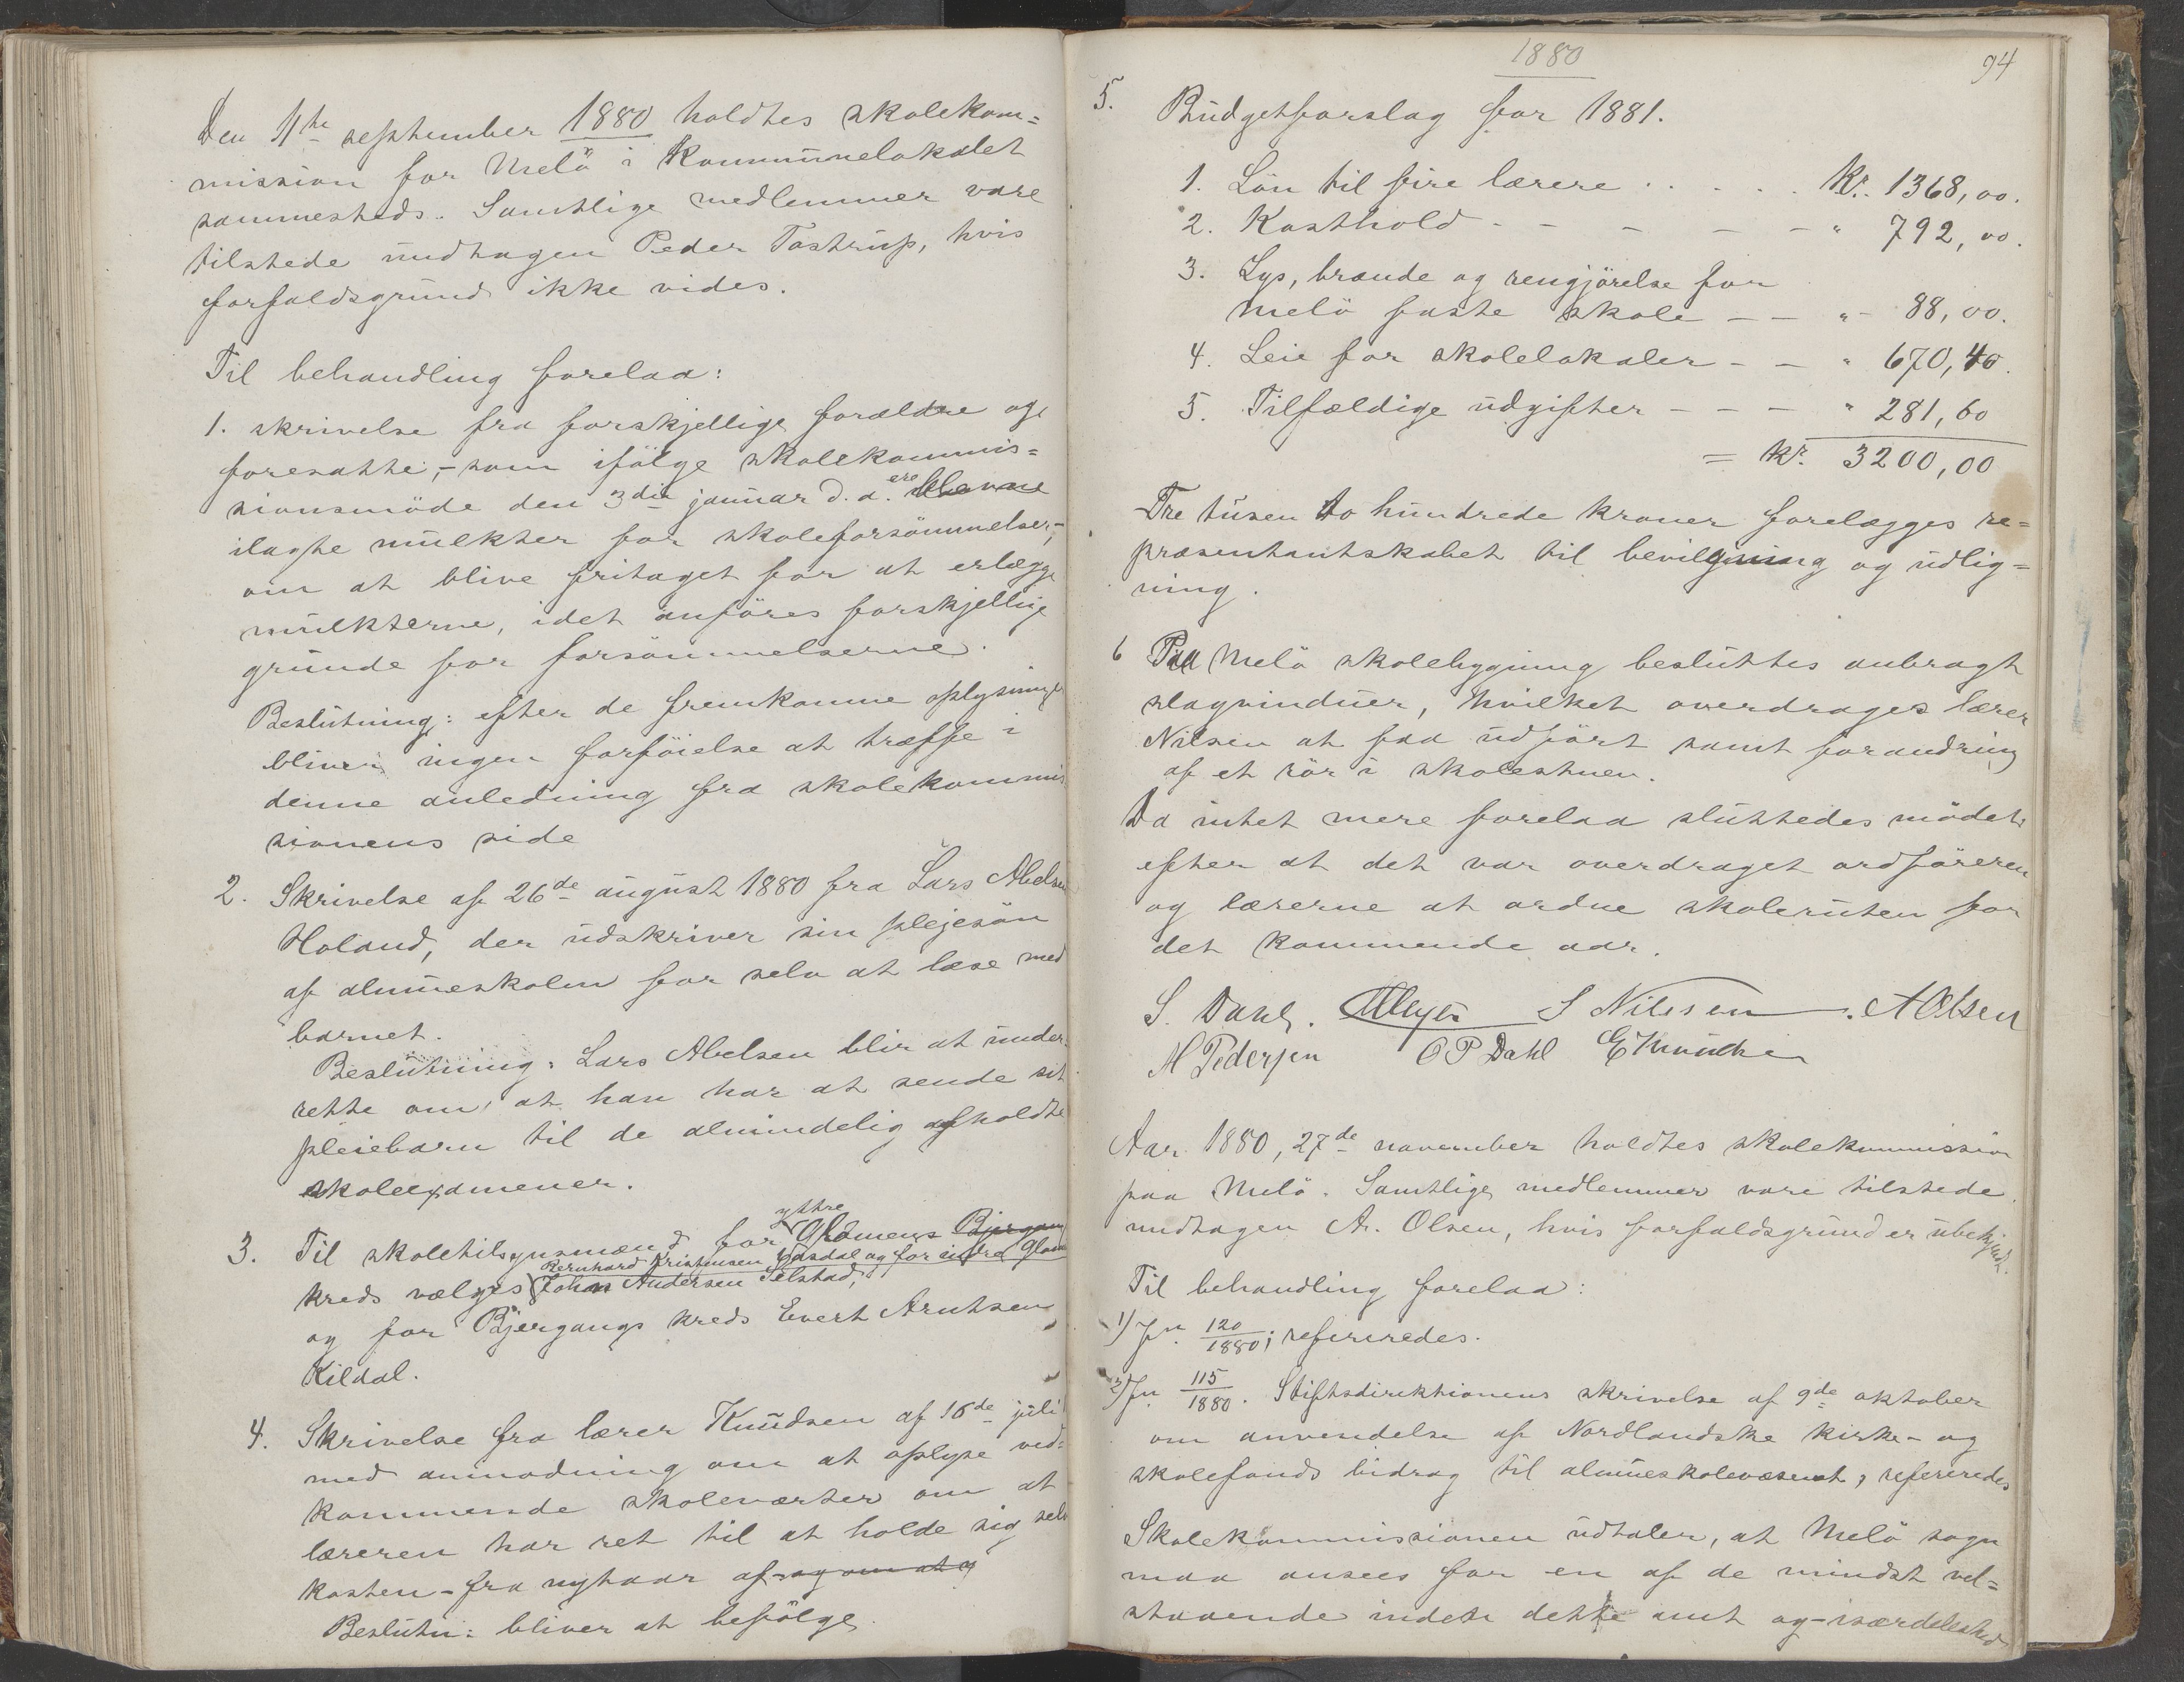 Den 11te september 1880 holdtes skolekom=
mission for Melö i Kommunelokalet
sammesteds. Samtlige medlemmer vare
tilstede undtagen Peder Tostrup, hvis
forfaldsgrund ikke vides.
Til behandling forelaa:
1. skrivelse fra forskjellige forældre og
foresatte,- som ifölge skolekommis=
sionsmöde den 3die januar d. a. ere
ilagte mulkter for skoleforsömmelser,-
om at blive fritaget for at erlægge
mulkterne, idet anföres forskjellige
grunde for forsömmelserne.
Beslutning: efter de fremkomne oplysninge
bliver ingen forföielse at træffe i
denne anledning fra skolekommis
sionens side
2. Skrivelse af 26de august 1880 fra Lars Abelsen
Holand, der udskriver sin plejesön
af almueskolen for selv at læse med
barnet.
Beslutning: Lars Abelsen blir at under
rette om, at han har at sende sit
pleiebarn til de almindelig afholdte
skoleexamener.
yttre
3. Til skoletilsynsmænd for Glomens Bjergang
Bernhard Kristensen Vasdal og for indre Glom
kreds vælges Johan Andersen Selstad,
og for Bjergangs kreds Evert Arntsen
Kildal.
4. Skrivelse fra lærer Knudsen af 16de juli
med anmodning om at oplyse ved=
kommende skoleværter om at
læreren har ret til at holde sig selv
kosten - fra nythaar af og om at og
Beslutn: bliver at befölge
1880
94
5. Budgetforslag for 1881.
1. Lön til fire lærere . . . . . Kr. 1368,00.
2. Kosthold - - - - - " 792,00.
3. Lys, brænde og rengjörelse for
Melö faste skole - - " - 88,00.
4. Leie for skolelokaler - - " 670,40.
5. Tilfældige udgifter - - - " 281,60
= Kr. 3200,00
Tre tusen to hundrede kroner forelægges re=
præsentantskabet til bevilgning og udlig=
ning.
6 Paa Melö skolebygning besluttes anbragt
slagvinduer, hvilket overdrages lærer
Nilsen at faa udfört samt forandring
af et rör i skolestuen.
Da intet mere forelaa sluttedes mödet
efter at det var overdraget ordföreren
og lærerne at ordne skoleruten for
det kommende aar.
S. Dahl. Meyer S Nilssen. A Olsen
M Pedersen O P Dahl E Munche
Aar 1880, 27de november holdtes skolekommission
paa Melö. Samtlige medlemmer vare tilstede
undtagen A. Olsen, hvis forfaldsgrund er ubekjendt.
Til behandling forelaa:
1) Jn. 120/1880; refereredes.
2) Jn 115/1880. Stiftsdirektionens skrivelse af 9de oktober
om anvendelse af Nordlandske kirke- og
skolefonds bidrag til almueskolevæsenet, refereredes
Skolekommissionen udtaler, at Melö sogn
maa ansees for en af de mindst vel=
staaende inden dette amt og - isærdeleshed